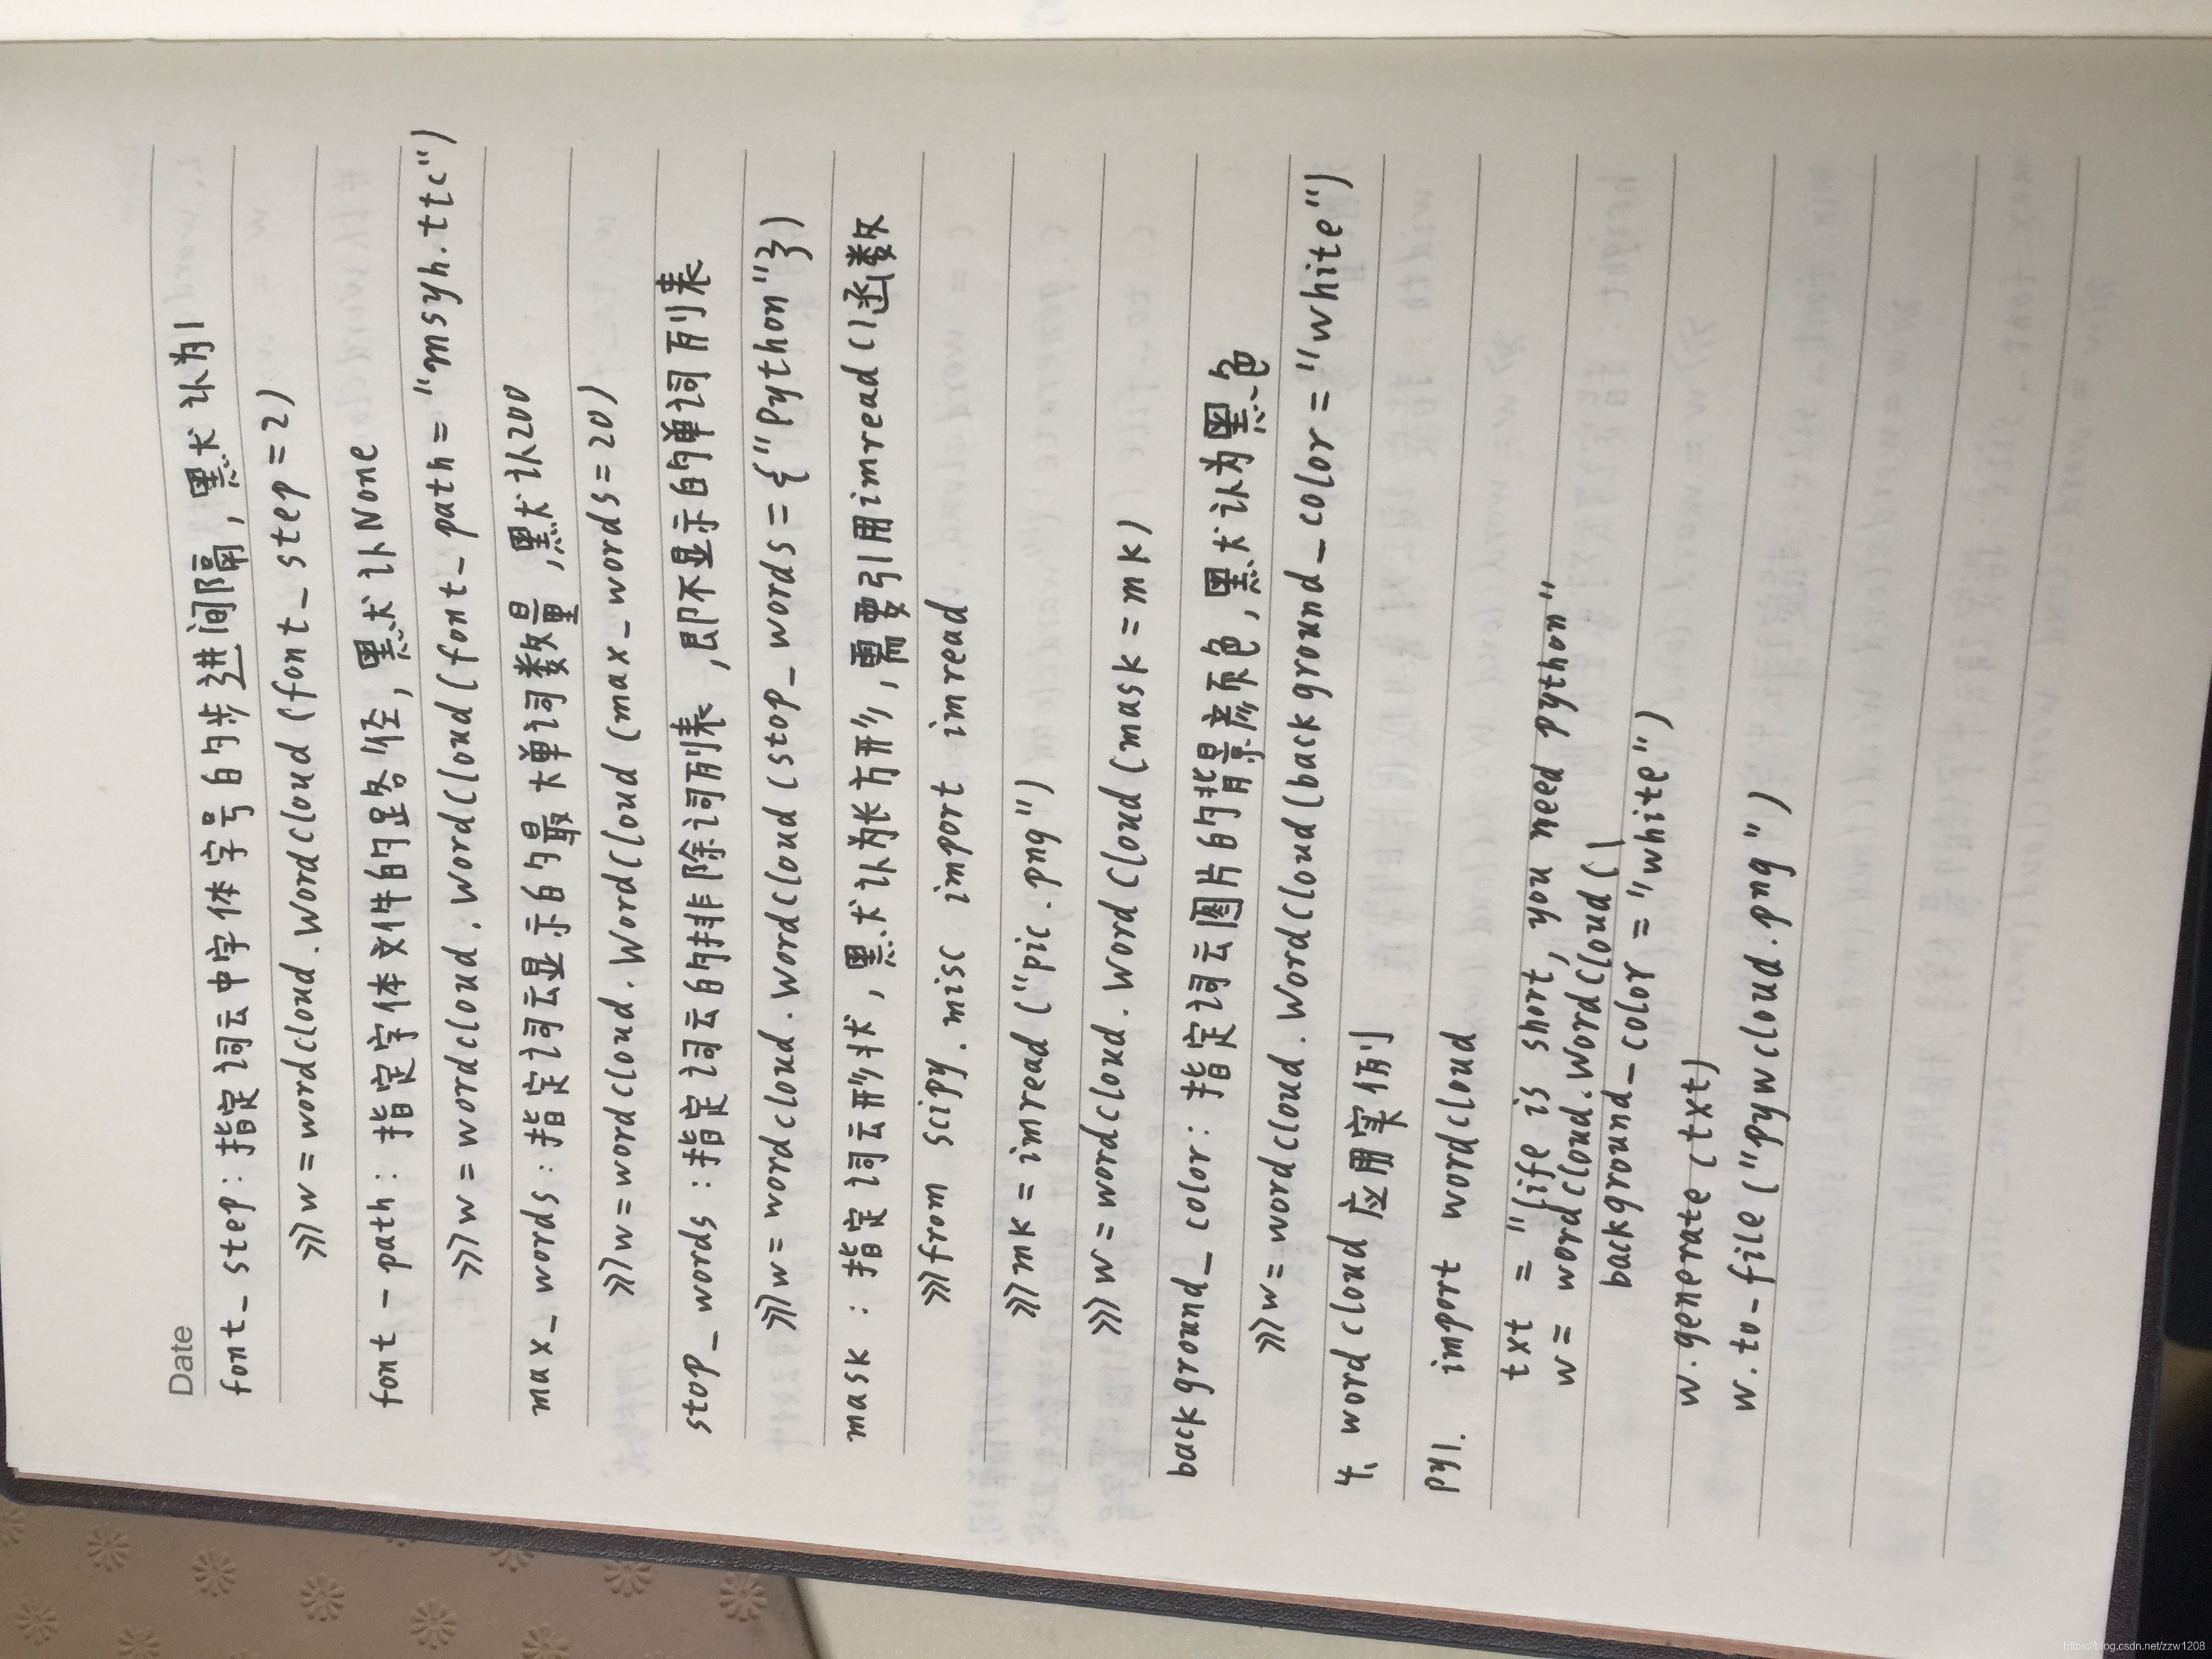 Date
font_step：指定词云中字体字号的步进间隔，默认为1
>>>w=wordcloud.WordCloud(font_step=2)
font-path：指定字体文件的路径，默认None
>>>w=wordcloud.WordCloud(font_path="msyh.ttc")
max_words：指定词云显示的最大单词数量，默认200
>>>w=wordcloud.WordCloud(max_words=20)
stop_words：指定词云的排除词列表，即不显示的单词列表
>>>w=wordcloud.WordCloud(stop_words={"Python"})
mask：指定词云形状，默认为长方形，需要引用imread()函数
>>>from scipy.misc import imread
>>>mk=imread("pic.png")
>>>w=wordcloud.WordCloud(mask=mk)
background_color：指定词云图片的背景颜色，默认为黑色
>>>w=wordcloud.WordCloud(background_color="white")
4、wordcloud应用实例
py1. import wordcloud
txt = "life is short, you need python"
w = wordcloud.WordCloud(\
background_color = "white")
w.generate(txt)
w.to-file("pywcloud.png")
https://blog.csdn.net/zzw1208